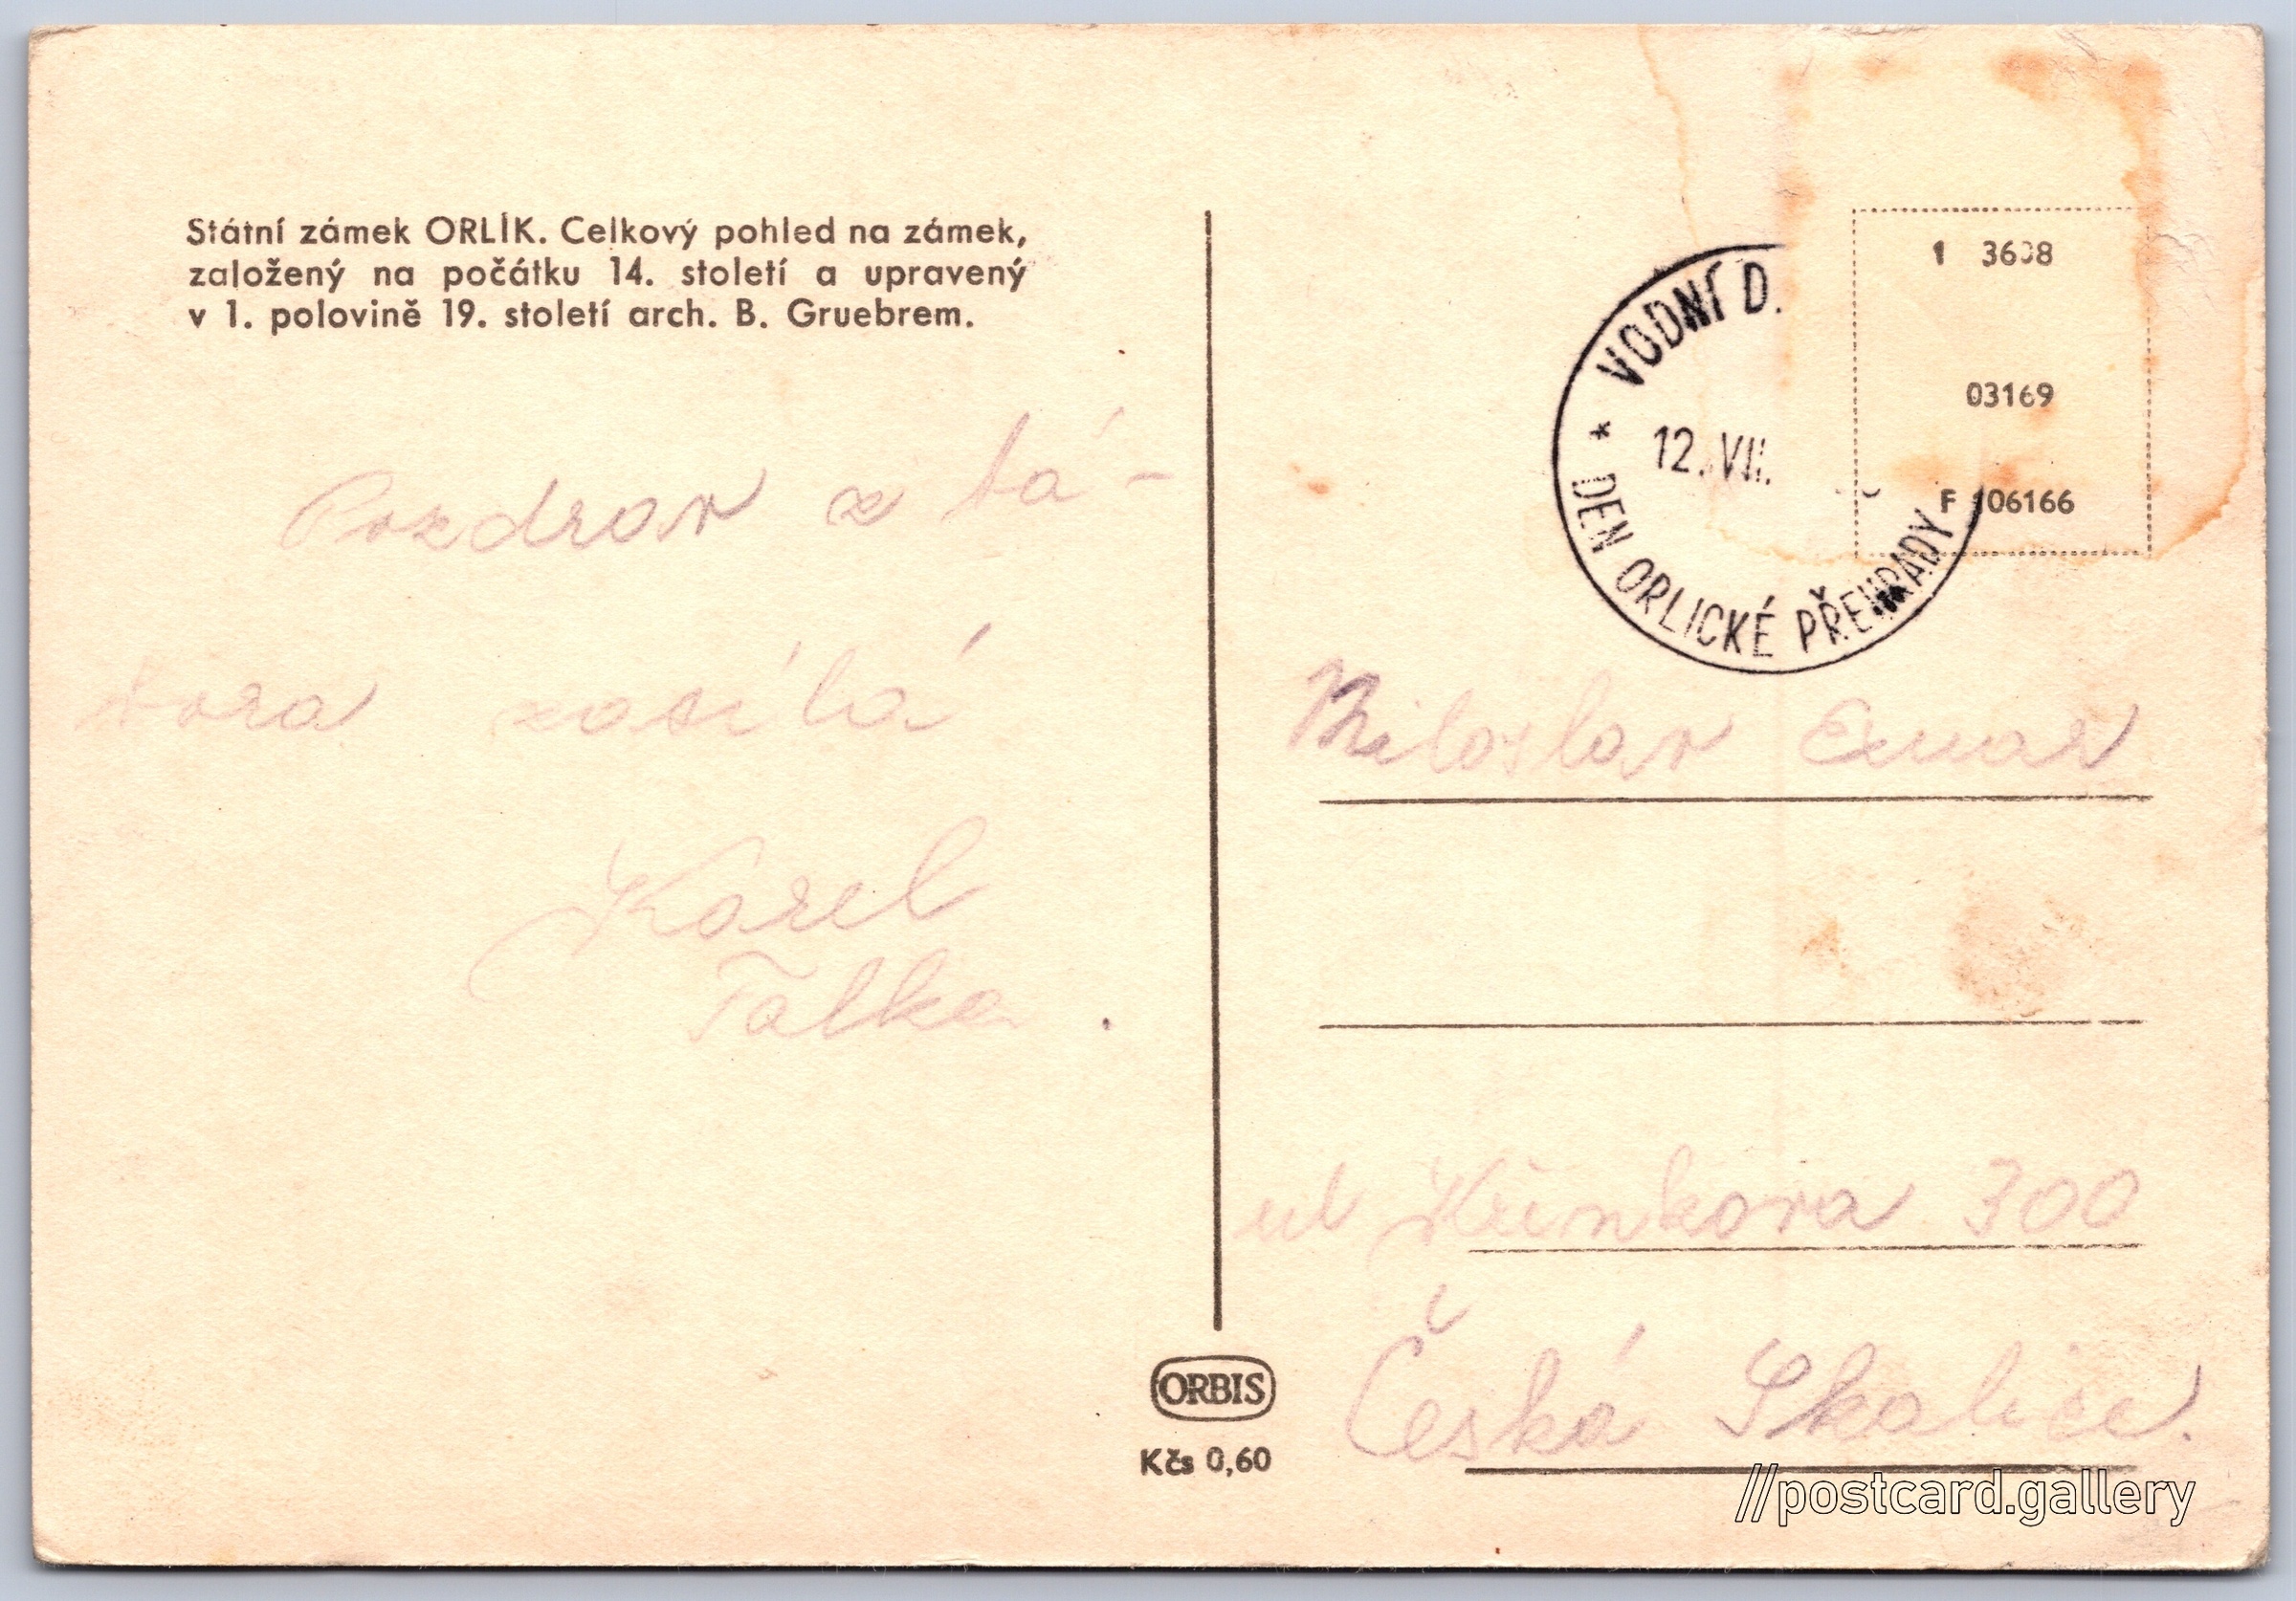 Státní zámek ORLÍK. Celkový pohled na zámek,
založený na počátku 14. století a upravený
v 1. polovině 19. století arch. B. Gruebrem.
Pozdrav z tá-
bora zasílá
Karel
VODNÍ D.
* 12. VII.
DEN ORLICKÉ PŘEHRADY
1 3638
03169
F 106166
Miloslav
ul 300
Česká Skalice.
ORBIS
Kčs 0,60
//postcard.gallery